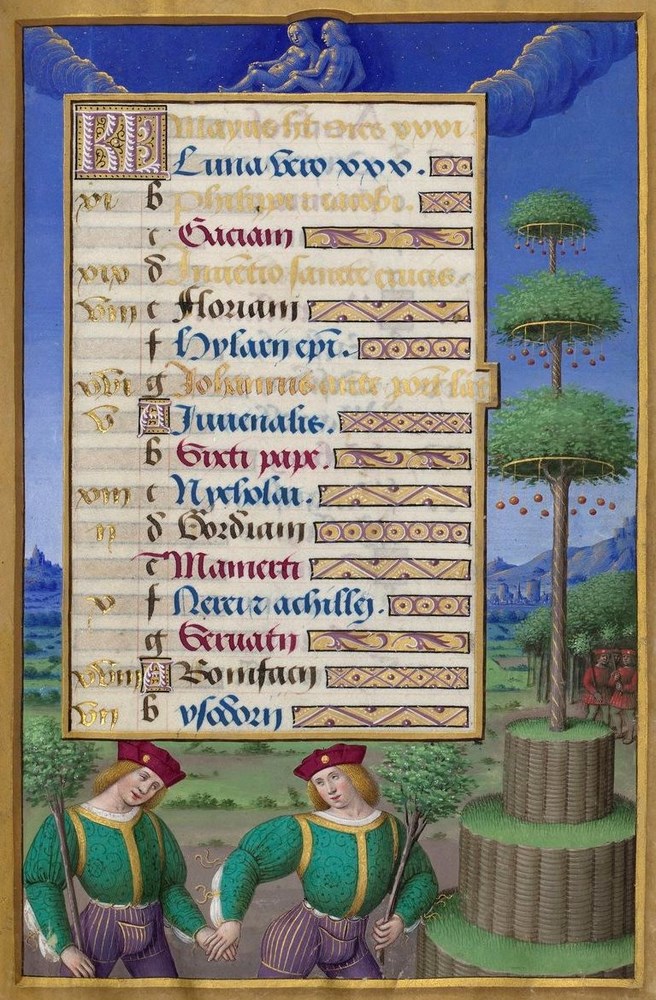 KL Mayus h̄t dies xxxi.
Luna vero xxx.
xi b Philippi et iacobi.
c Gaciani
xix d Inuētio sancte crucis.
viii e Floriani
f Hylarii ep̄i.
xvi g Johannis ante port̄ lat̄
v A Iuuenalis.
b Sixti pape.
xiii c Nycholai.
ii d Gordiani
e Mamerti
x f Nerei z achillei.
g Seruatii
xviii A Bonifacii
vii b ysodorii